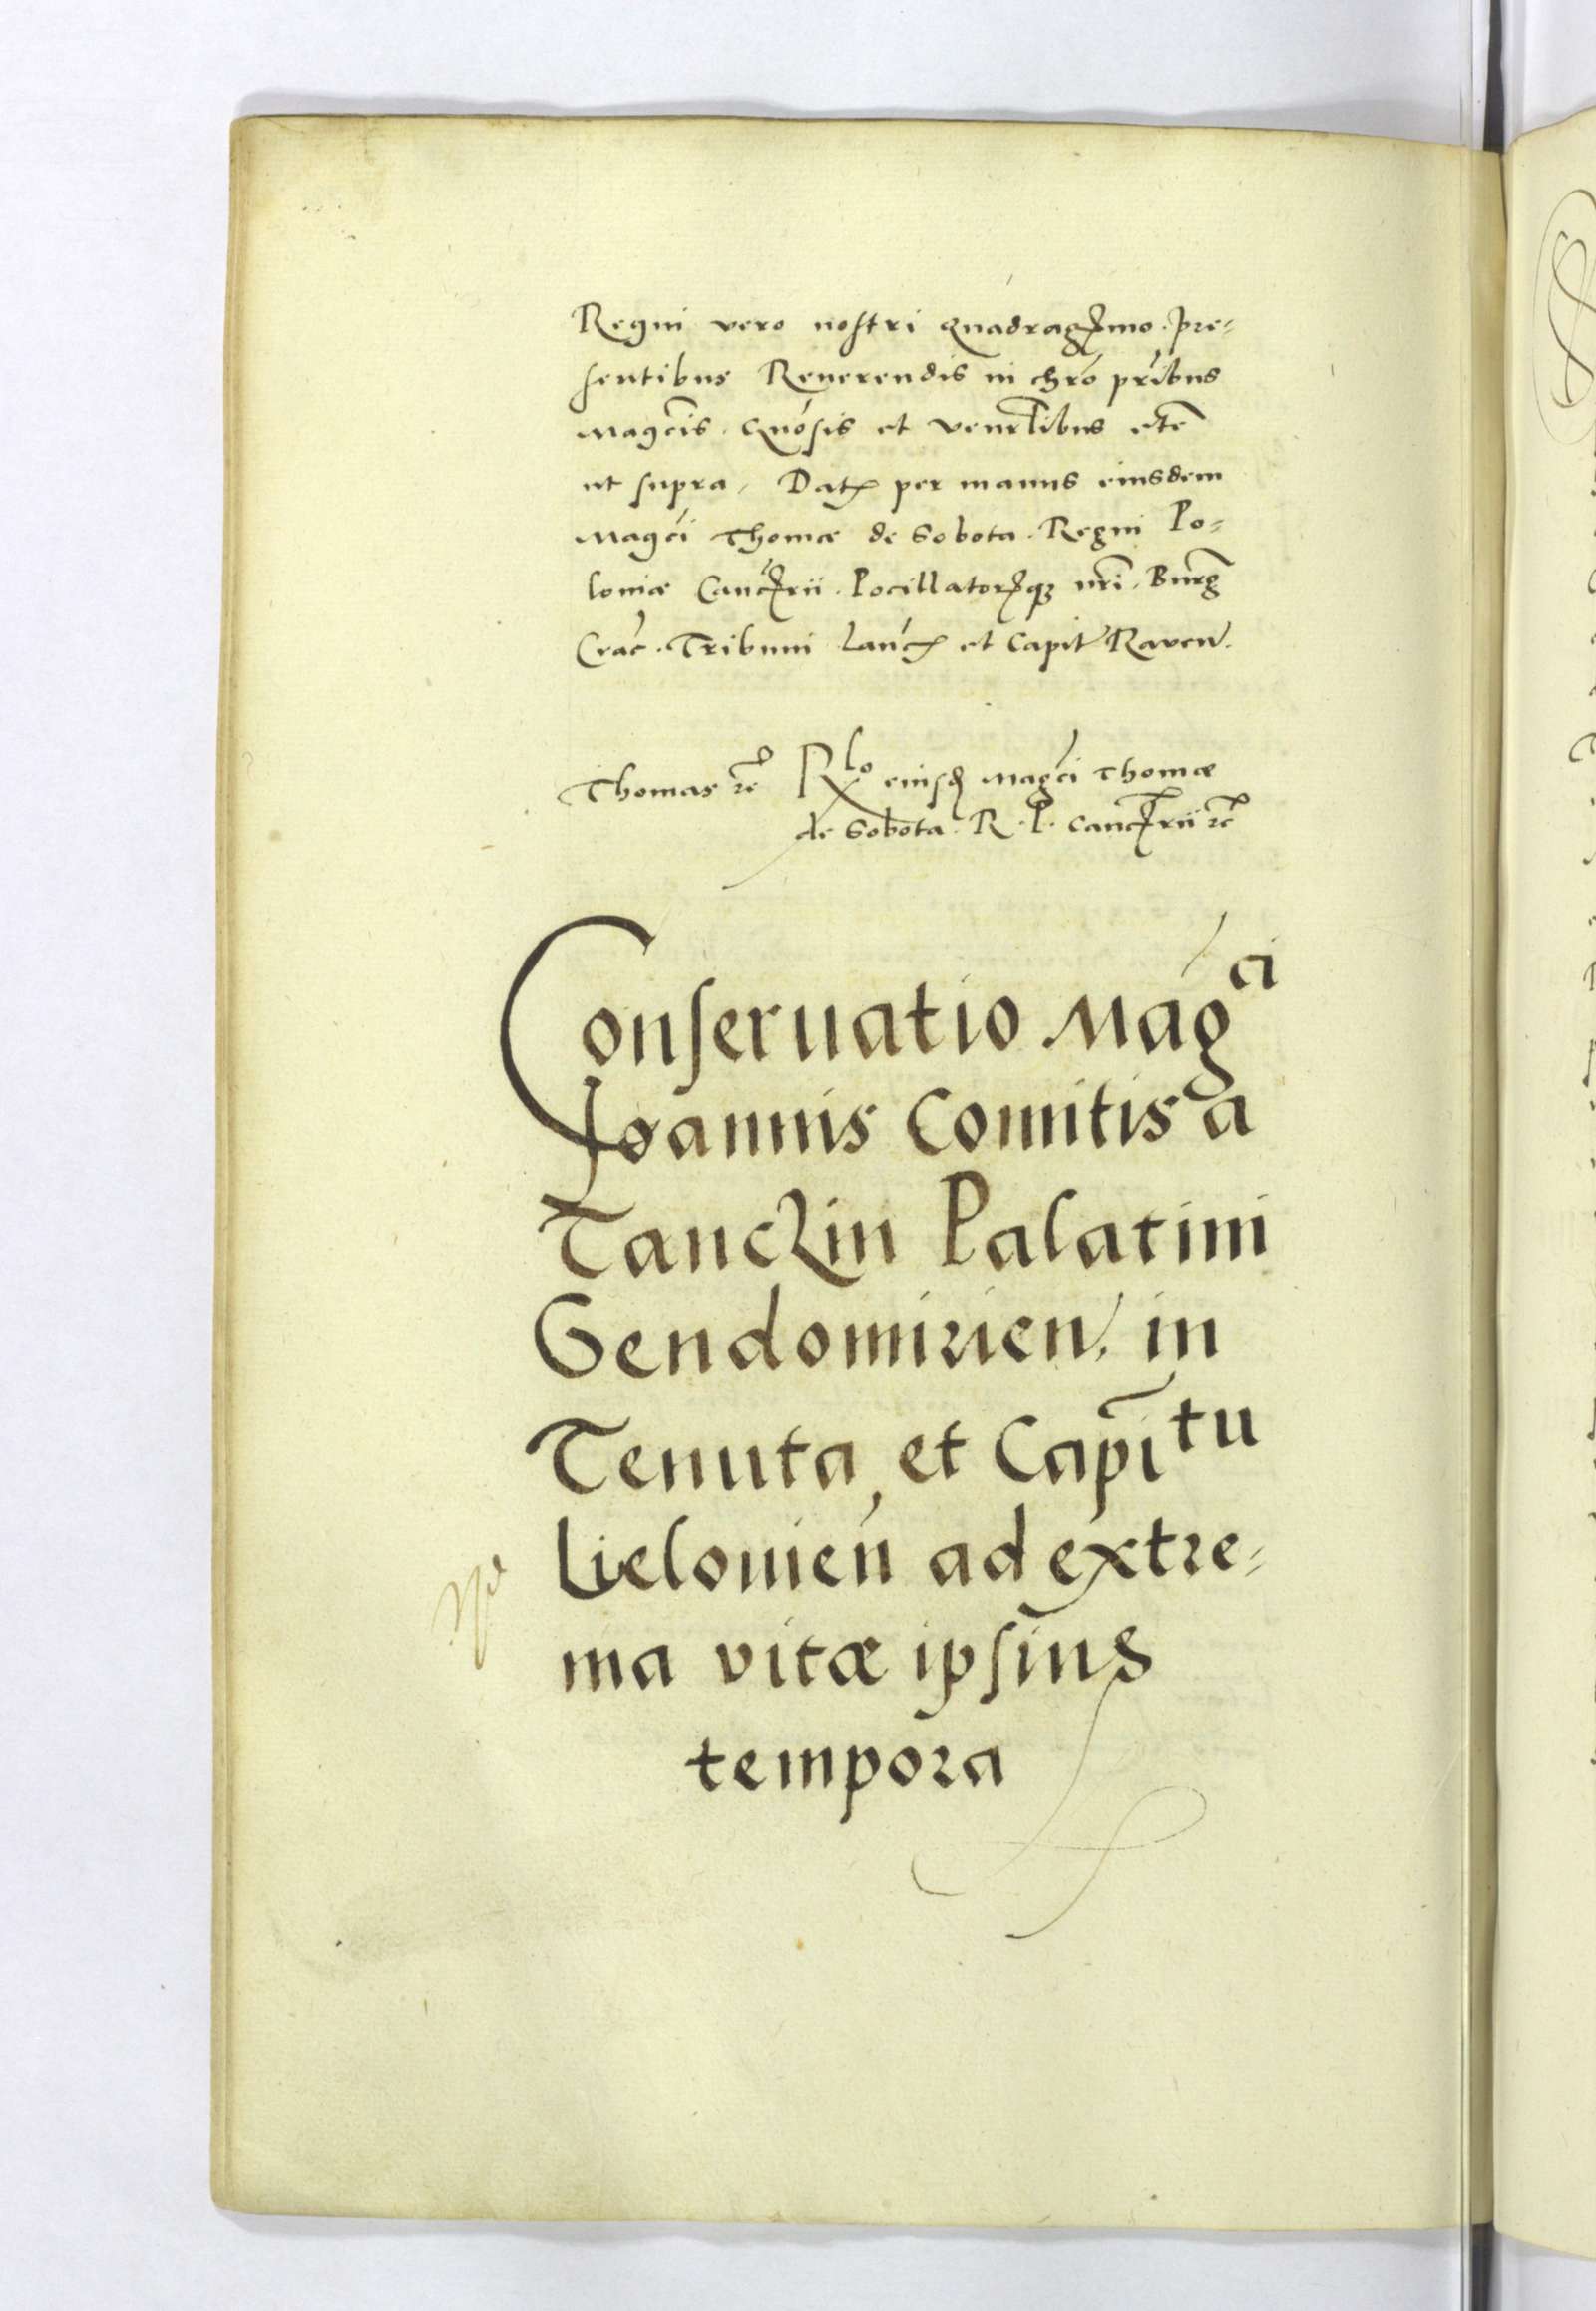 Regni vero nostri quadragĩmo. pre-
sentibus Reuerendis in chr̃o pr̃ibus
Magcĩs. Gñosis et venrl̃ibus etc̃
ut supra, Dat̃ per manus eiusdem
Magci Thomæ de Sobota. Regni Po-
loniæ Canc̃rii. Pocillatorisq; nr̃i. Burg̃
Crac̃. Tribuni Lanc̃ et Capit̃ Raven.
Thomas rẽ Rlo eiusd̃ Magci Thomæ
de Sobota. R. P. Canc̃rii rc̃
Conseruatio Magci
Joannis Comitis a
Tanczin Palatini
Sendomirien, in
Tenuta, et Capĩtu
Lielouien̄ ad extre-
ma vitæ ipsius
tempora